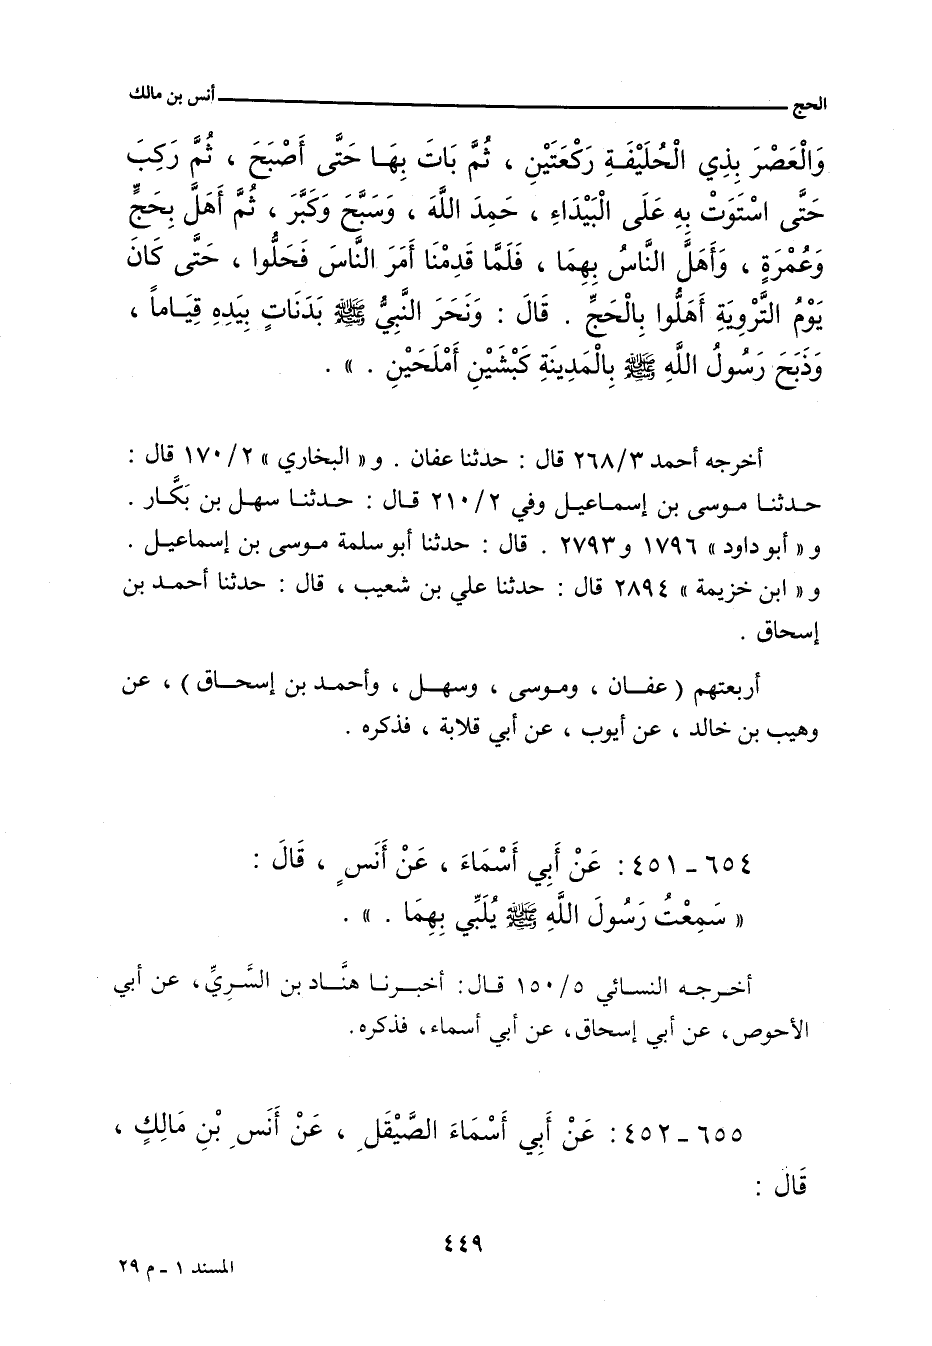 الحج ــــــــــ أنس بن مالك
وَالْعَصْرَ بِذِي الْحُلَيْفَةِ رَكْعَتَيْنِ ، ثُمَّ بَاتَ بِهَا حَتَّى أَصْبَحَ ، ثُمَّ رَكِبَ
حَتَّى اسْتَوَتْ بِهِ عَلَى الْبَيْدَاءِ ، حَمِدَ اللَّهَ ، وَسَبَّحَ وَكَبَّرَ ، ثُمَّ أَهَلَّ بِحَجٍّ
وَعُمْرَةٍ ، وَأَهَلَّ النَّاسُ بِهِمَا ، فَلَمَّا قَدِمْنَا أَمَرَ النَّاسَ فَحَلُّوا ، حَتَّى كَانَ
يَوْمُ التَّرْوِيَةِ أَهَلُّوا بِالْحَجِّ . قَالَ : وَنَحَرَ النَّبِيُّ ﷺ بَدَنَاتٍ بِيَدِهِ قِيَاماً ،
وَذَبَحَ رَسُولُ اللَّهِ ﷺ بِالْمَدِينَةِ كَبْشَيْنِ أَمْلَحَيْنِ . » .
أخرجه أحمد ٢٦٨/٣ قال : حدثنا عفان . و « البخاري » ١٧٠/٢ قال :
حدثنا موسى بن إسماعيل وفي ٢١٠/٢ قال : حدثنا سهل بن بَكَّار .
و « أبو داود » ١٧٩٦ و ٢٧٩٣ . قال : حدثنا أبو سلمة موسى بن إسماعيل .
و « ابن خزيمة » ٢٨٩٤ قال : حدثنا علي بن شعيب ، قال : حدثنا أحمد بن
إسحاق .
أربعتهم ( عفان ، وموسى ، وسهل ، وأحمد بن إسحاق ) ، عن
وهيب بن خالد ، عن أيوب ، عن أبي قلابة ، فذكره .
٦٥٤ - ٤٥١ : عَنْ أَبِي أَسْمَاءَ ، عَنْ أَنَسٍ ، قَالَ :
« سَمِعْتُ رَسُولَ اللَّهِ ﷺ يُلَبِّي بِهِمَا . » .
أخرجه النسائي ١٥٠/٥ قال : أخبرنا هنَّاد بن السَّرِيِّ، عن أبي
الأحوص، عن أبي إسحاق، عن أبي أسماء، فذكره.
٦٥٥ - ٤٥٢ : عَنْ أَبِي أَسْمَاءَ الصَّيْقَلِ ، عَنْ أَنَسِ بْنِ مَالِكٍ ،
قَالَ :
٤٤٩
المسند ١ - م ٢٩